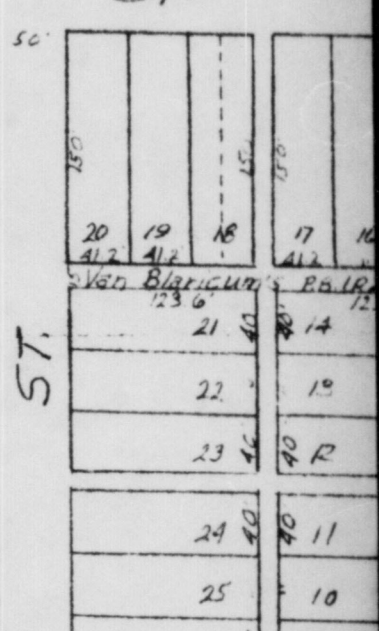 50'
150' 150' 150'
20 19 18 17 16
41.2 41.2 41.2
Van Blaricum's
123.6'
21 40 40 14
ST.
22 13
23 40 40 12
24 40 40 11
25 10